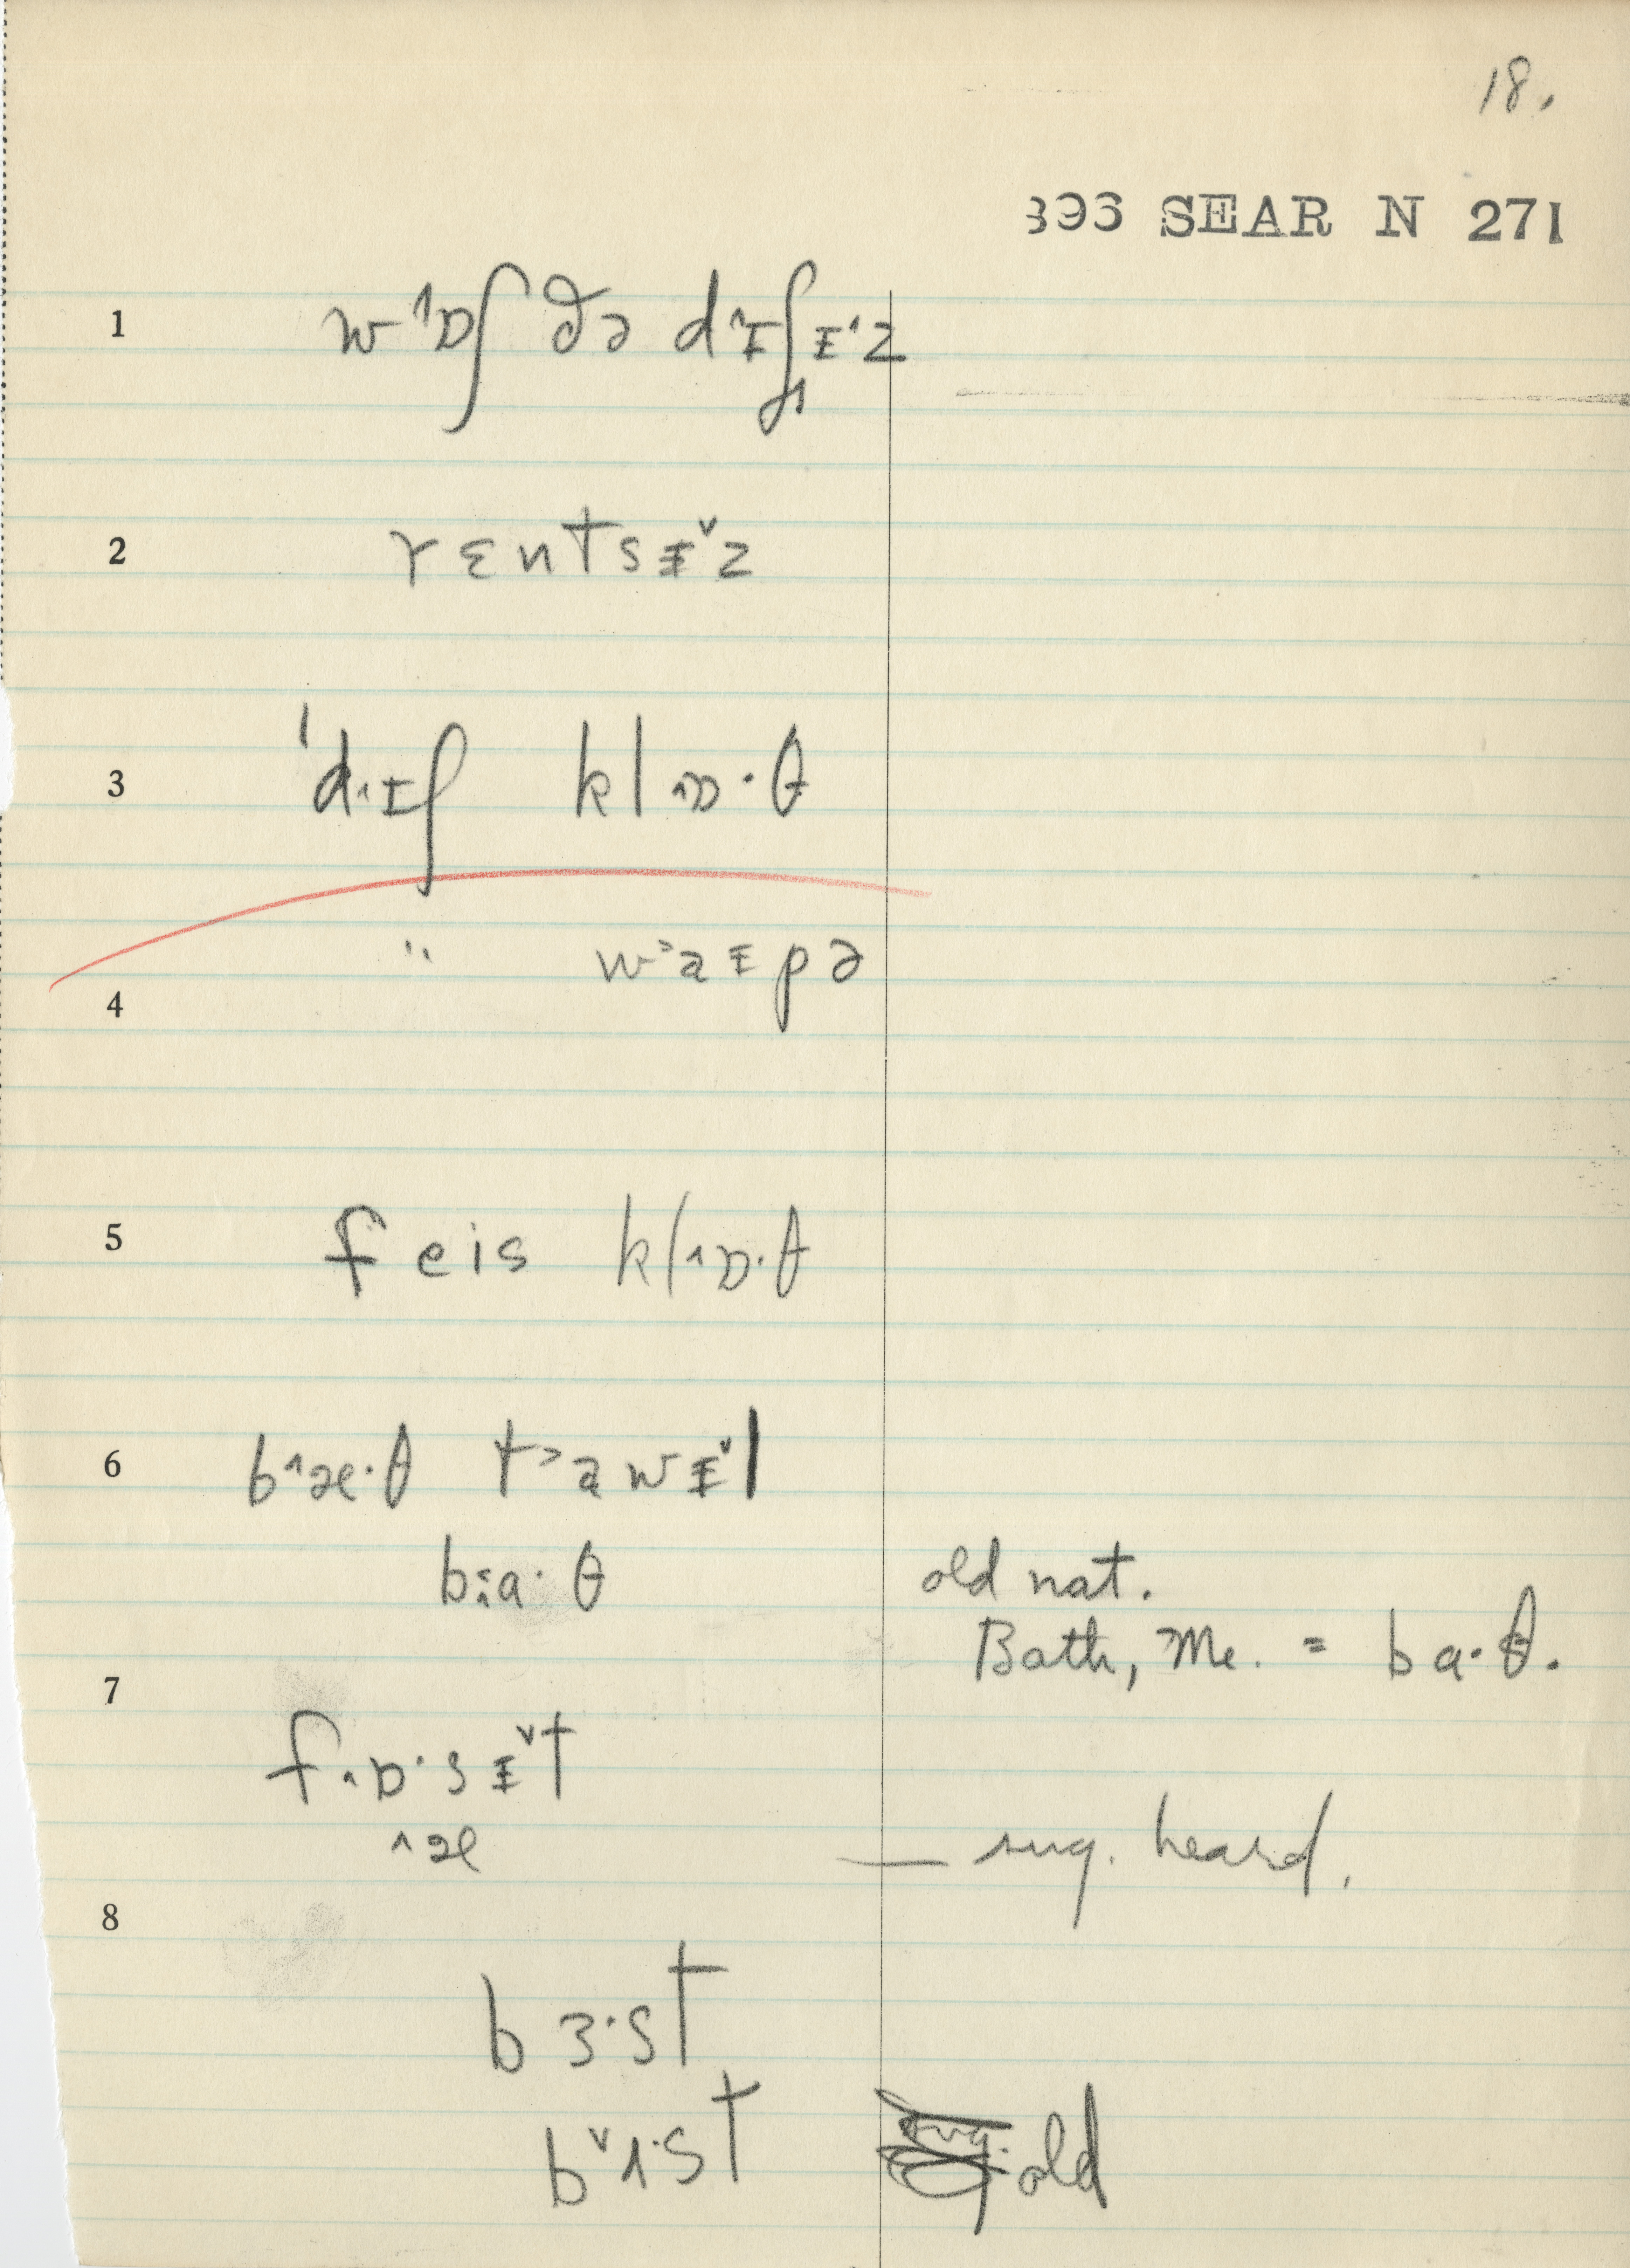 18.
396 SEAR N 271
1 w˄ɒʃ ðə d˄ɪʃɪ˄z
2 rɛntsɪ˅z
3 'd˄ɪʃ kl˄ɒ·θ
4 " w˃aɪpə
5 feis kl˄ɒ·θ
6 b˄æ·θ t˃awɪ˅l
b˄a·θ old nat.
Bath, Me. = ba·θ.
7 f˄ɒ·sɪ˅t
˄æ — sug. heard.
8 bɜ·st
b˅ʌ·st old